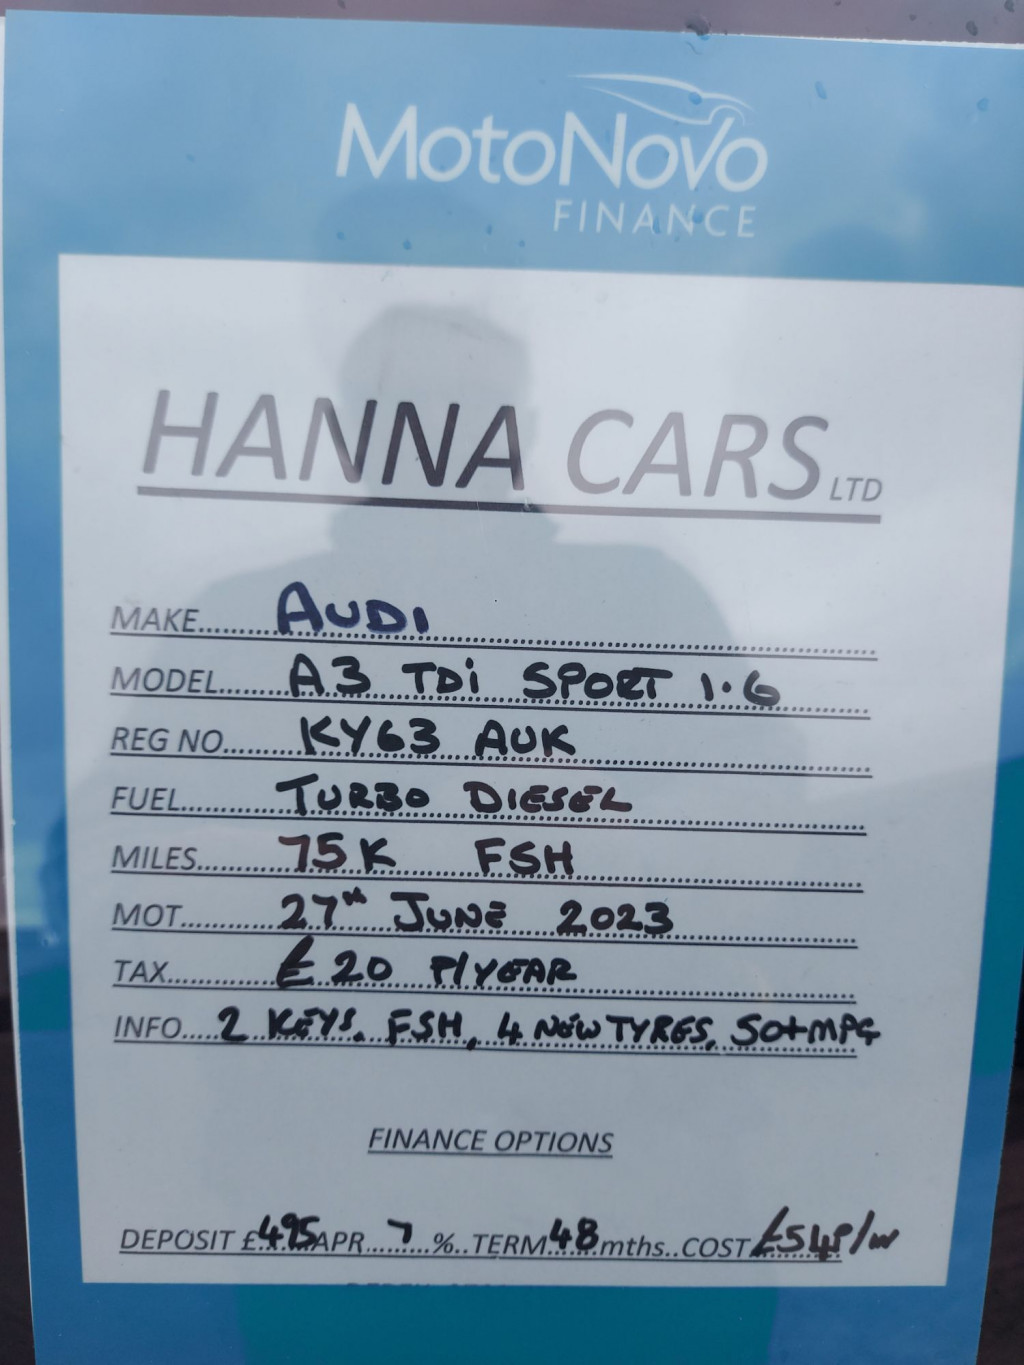 MotoNovo
FINANCE
HANNA CARS LTD
MAKE.......AUDI
MODEL.......A3 TDi SPORT 1.6
REG NO.......KY63 AUK
FUEL.......TURBO DIESEL
MILES.......75K FSH
MOT.......27th JUNE 2023
TAX.......£20 P/YEAR
INFO.....2 KEYS, FSH, 4 NEW TYRES, 50+MPG
FINANCE OPTIONS
DEPOSIT £495 APR.......7 %..TERM 48 mths..COST £54P/W